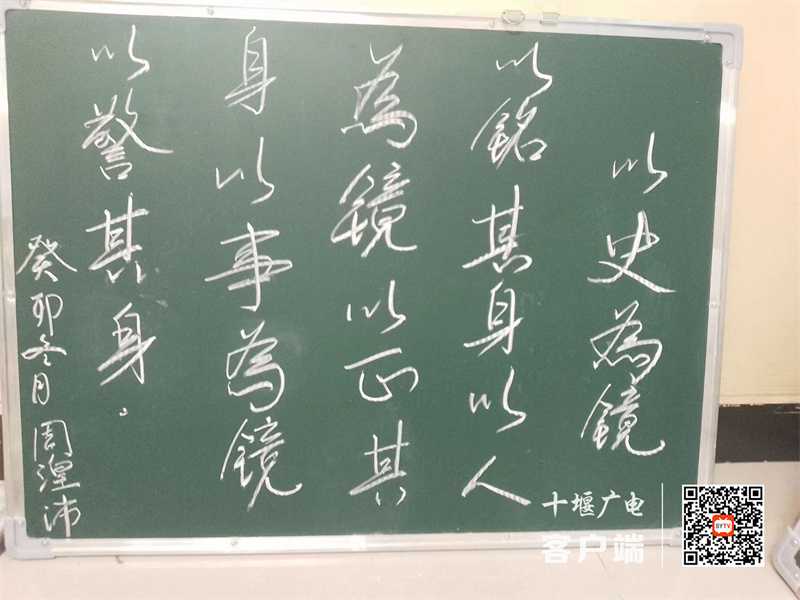 以史為鏡
以銘其身以人
為鏡以正其
身以事為鏡
以警其身。
癸卯冬月周湟沛
十堰广电
客户端
SYTV